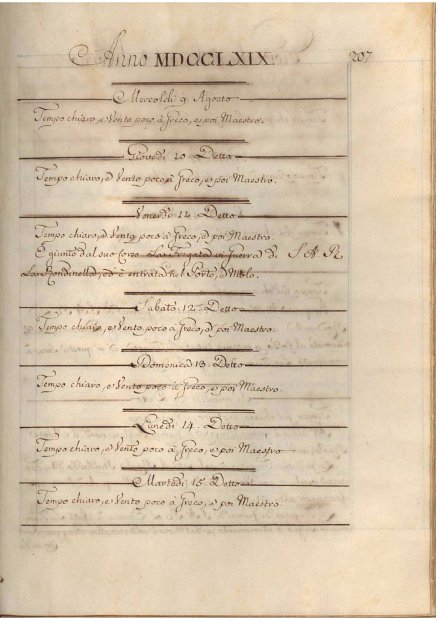 Anno MDCCLXIX.
207
Mercoldì 9 Agosto
Tempo chiaro, e Vento poco à Greco, e poi Maestro.
Giovedì 10 Detto
Tempo chiaro, e Vento poco à Greco, e poi Maestro.
Venerdì 11 Detto
Tempo chiaro, e Vento poco à Greco, e poi Maestro.
È giunto dal suo Corso La Fregata in Guerra di S. A. R.
La Rondinella, ed è entrata nel Porto, e Molo.
Sabato 12 Detto
Tempo chiaro, e Vento poco à Greco, e poi Maestro.
Domenica 13 Detto
Tempo chiaro, e Vento poco à Greco, e poi Maestro.
Lunedì 14 Detto
Tempo chiaro, e Vento poco à Greco, e poi Maestro
Martedì 15 Detto
Tempo chiaro, e Vento poco à Greco, e poi Maestro.